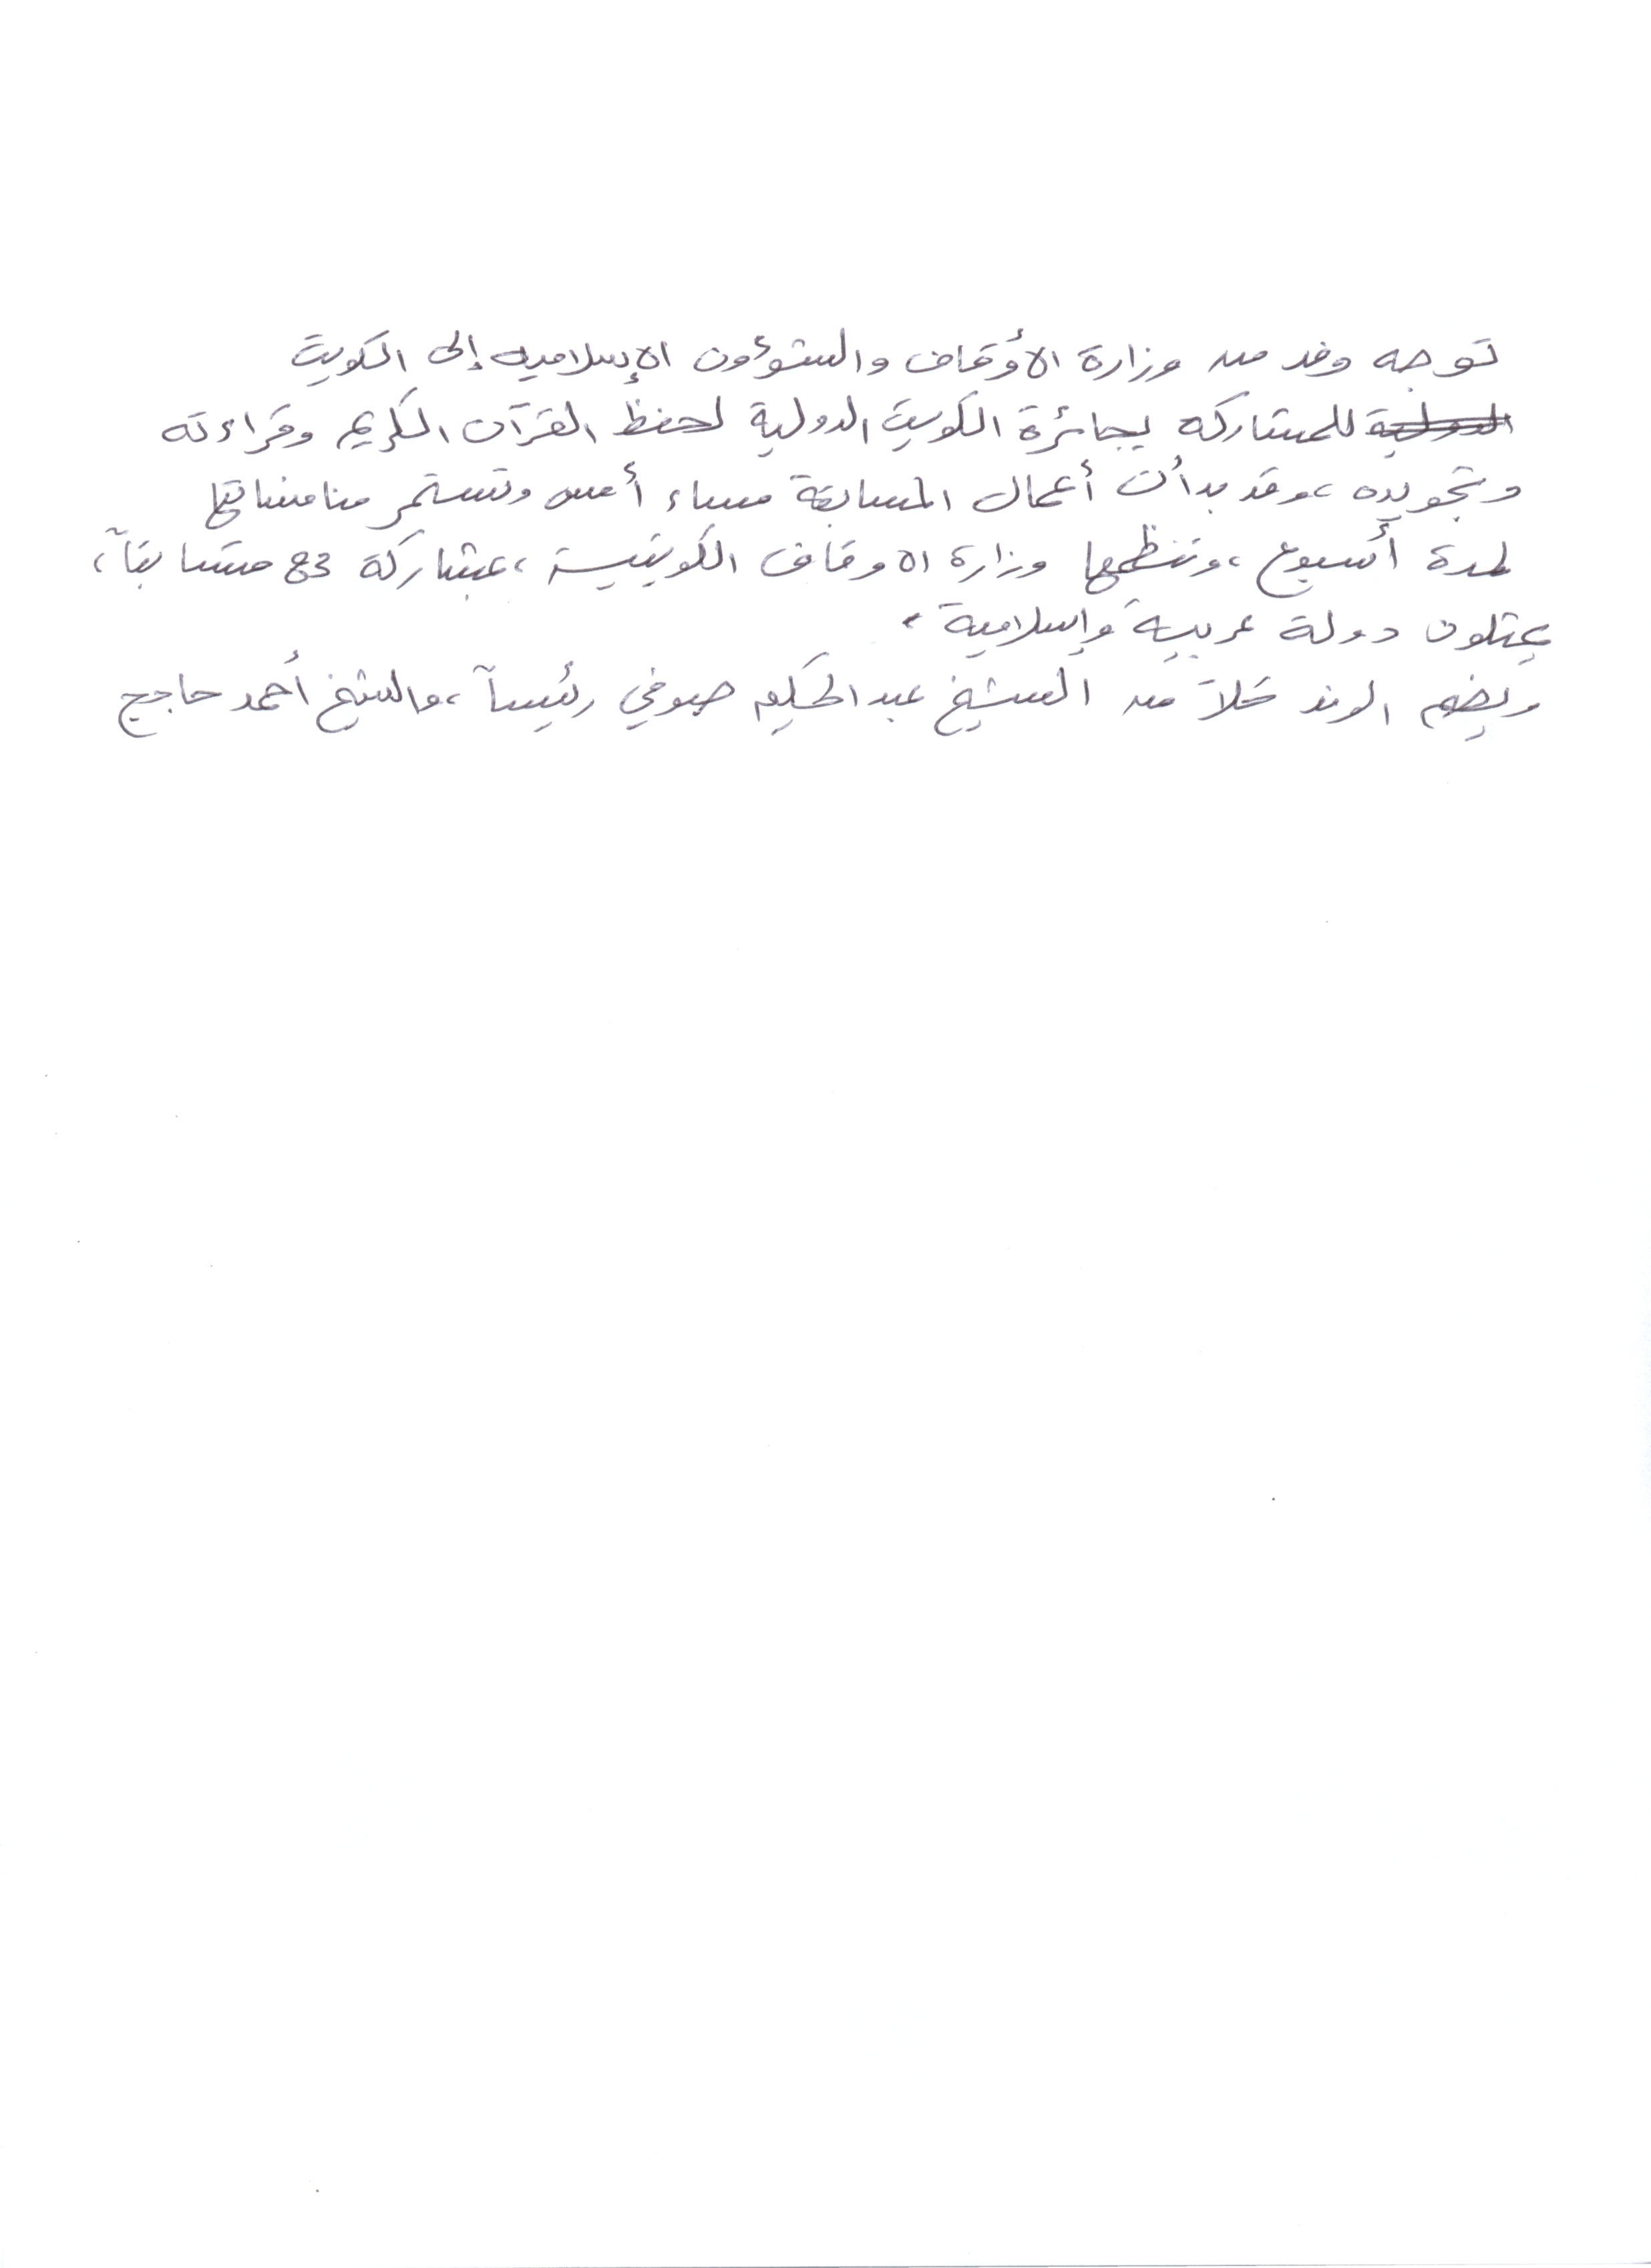 توجه وفد من وزارة الأوقاف والشؤون الإسلاميه إلى الكويت
للمشاركه بجائزة الكويت الدولية لحفظ القرآن الكريم وقراءته
وتجويده، وقد بدأت أعمال المسابقة مساء أمس وتستمر منافساتها
لمدة أسبوع، وتنظمها وزارة الاوقاف الكويتية، بمشاركة 83 متسابقاً،
يمثلون دولة عربية وإسلامية.
ويضم الوفد كلاً من الشيخ عبد الحكيم صوفي رئيساً، والشيخ أحمد حاجيج